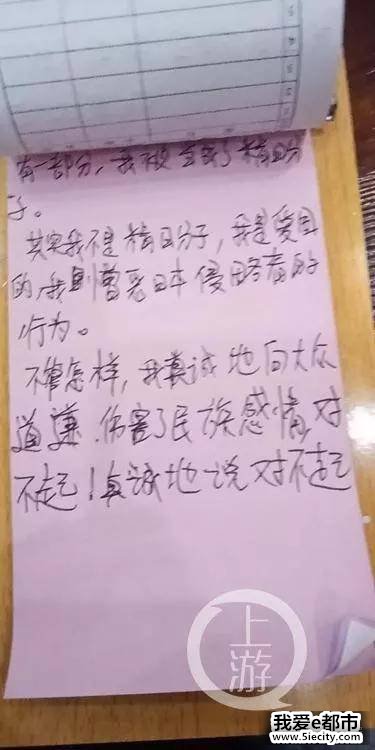 有一部分,我被当成了精日分
子。
其实我不是精日分子,我是爱国
的,我憎恶日本侵略者的
行为。
不管怎样,我真诚地向大众
道歉.伤害了民族感情,对
不起!真诚地说对不起
上游
我爱e都市
www.5iecity.com